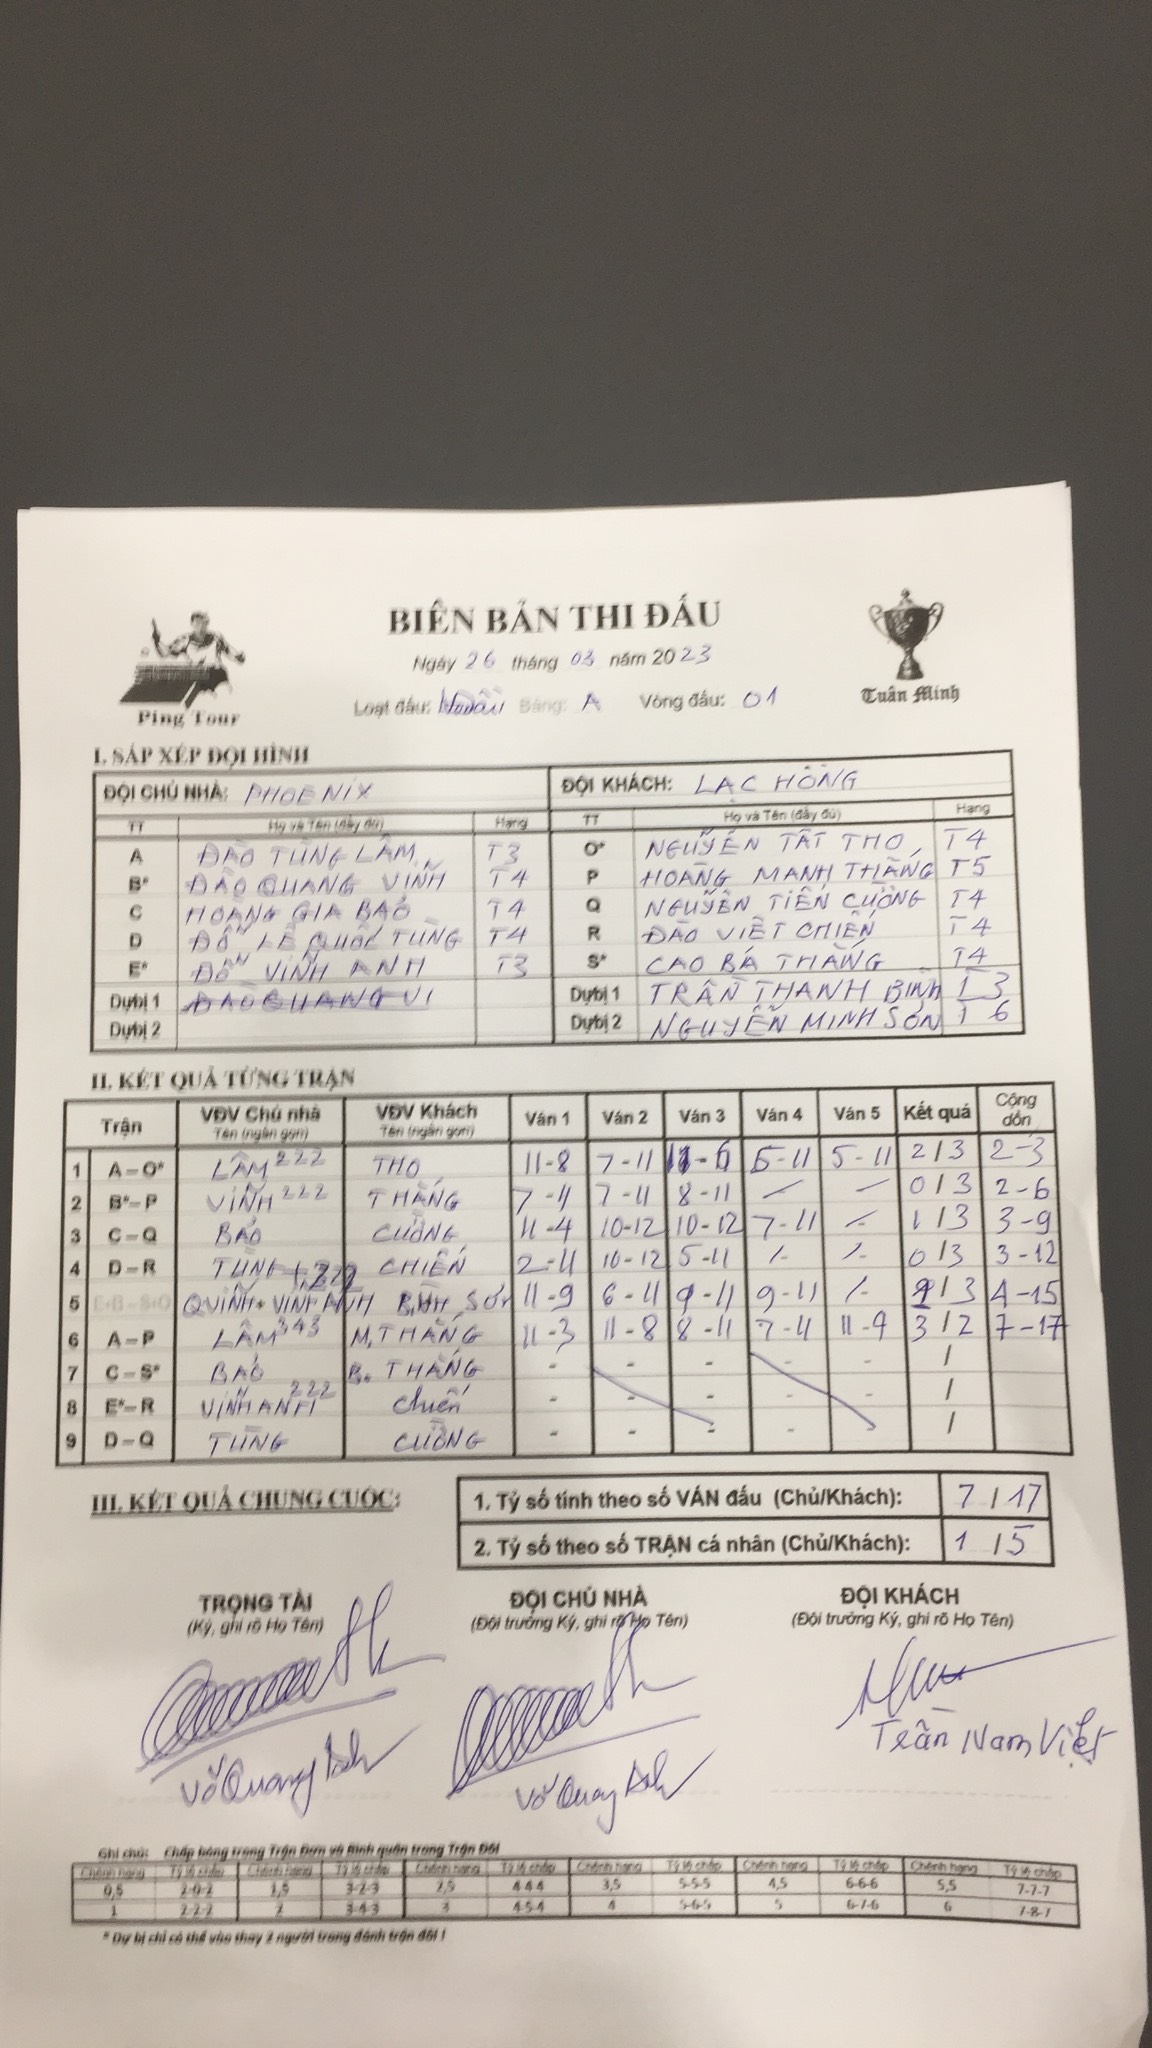 BIÊN BẢN THI ĐẤU
Ngày 26 tháng 03 năm 2023
Ping Tour
Tuấn Minh
Loạt đấu: Bảng: A Vòng đấu: 01
I. SẮP XẾP ĐỘI HÌNH
ĐỘI CHỦ NHÀ: PHOENIX ĐỘI KHÁCH: LẠC HỒNG
TT Họ và Tên (đầy đủ) Hạng TT Họ và Tên (đầy đủ) Hạng
A ĐÀO TÙNG LÂM T3 O* NGUYỄN TẤT THỌ T4
B* ĐÀO QUANG VINH T4 P HOÀNG MẠNH THẮNG T5
C HOÀNG GIA BẢO T4 Q NGUYỄN TIẾN CƯỜNG T4
D ĐỖ LÊ QUỐC TÙNG T4 R ĐÀO VIẾT CHIẾN T4
E* ĐỖ VINH ANH T3 S* CAO BÁ THẮNG T4
Dự bị 1 ĐÀO QUANG VI Dự bị 1 TRẦN THANH BÌNH T3
Dự bị 2 Dự bị 2 NGUYỄN MINH SƠN T6
II. KẾT QUẢ TỪNG TRẬN
Trận VĐV Chủ nhà Tên (ngắn gọn) VĐV Khách Tên (ngắn gọn) Ván 1 Ván 2 Ván 3 Ván 4 Ván 5 Kết quả Cộng dồn
1 A – O* LÂM 222 THỌ 11-8 7-11 11-6 5-11 5-11 2/3 2-3
2 B* – P VINH 222 THẮNG 7-11 7-11 8-11 - - 0/3 2-6
3 C – Q BẢO CƯỜNG 11-4 10-12 10-12 7-11 - 1/3 3-9
4 D – R TÙNG CHIẾN 2-11 10-12 5-11 - - 0/3 3-12
5 E+B – S+O Q VINH + VINH ANH BÌNH SƠN 11-9 6-11 9-11 9-11 - 1/3 4-15
6 A – P LÂM 343 M. THẮNG 11-3 11-8 8-11 7-11 11-9 3/2 7-17
7 C – S* BẢO B. THẮNG - - - - - /
8 E* – R VINH ANH 222 Chiến - - - - - /
9 D – Q TÙNG CƯỜNG - - - - - /
III. KẾT QUẢ CHUNG CUỘC:
1. Tỷ số tính theo số VÁN đấu (Chủ/Khách): 7 / 17
2. Tỷ số theo số TRẬN cá nhân (Chủ/Khách): 1 / 5
TRỌNG TÀI ĐỘI CHỦ NHÀ ĐỘI KHÁCH
(Ký, ghi rõ Họ Tên) (Đội trưởng Ký, ghi rõ Họ Tên) (Đội trưởng Ký, ghi rõ Họ Tên)
Võ Quang Võ Quang Trần Nam Việt
Ghi chú: Chấp bóng trong Trận Đơn và Bình quân trong Trận Đôi
Chênh hạng Tỷ lệ chấp Chênh hạng Tỷ lệ chấp Chênh hạng Tỷ lệ chấp Chênh hạng Tỷ lệ chấp Chênh hạng Tỷ lệ chấp Chênh hạng Tỷ lệ chấp
0,5 2-0-2 1,5 3-2-3 2,5 4-4-4 3,5 5-5-5 4,5 6-6-6 5,5 7-7-7
1 2-2-2 2 3-4-3 3 4-5-4 4 5-6-5 5 6-7-6 6 7-8-7
* Dự bị chỉ có thể vào thay 2 người trong đánh trận đôi !